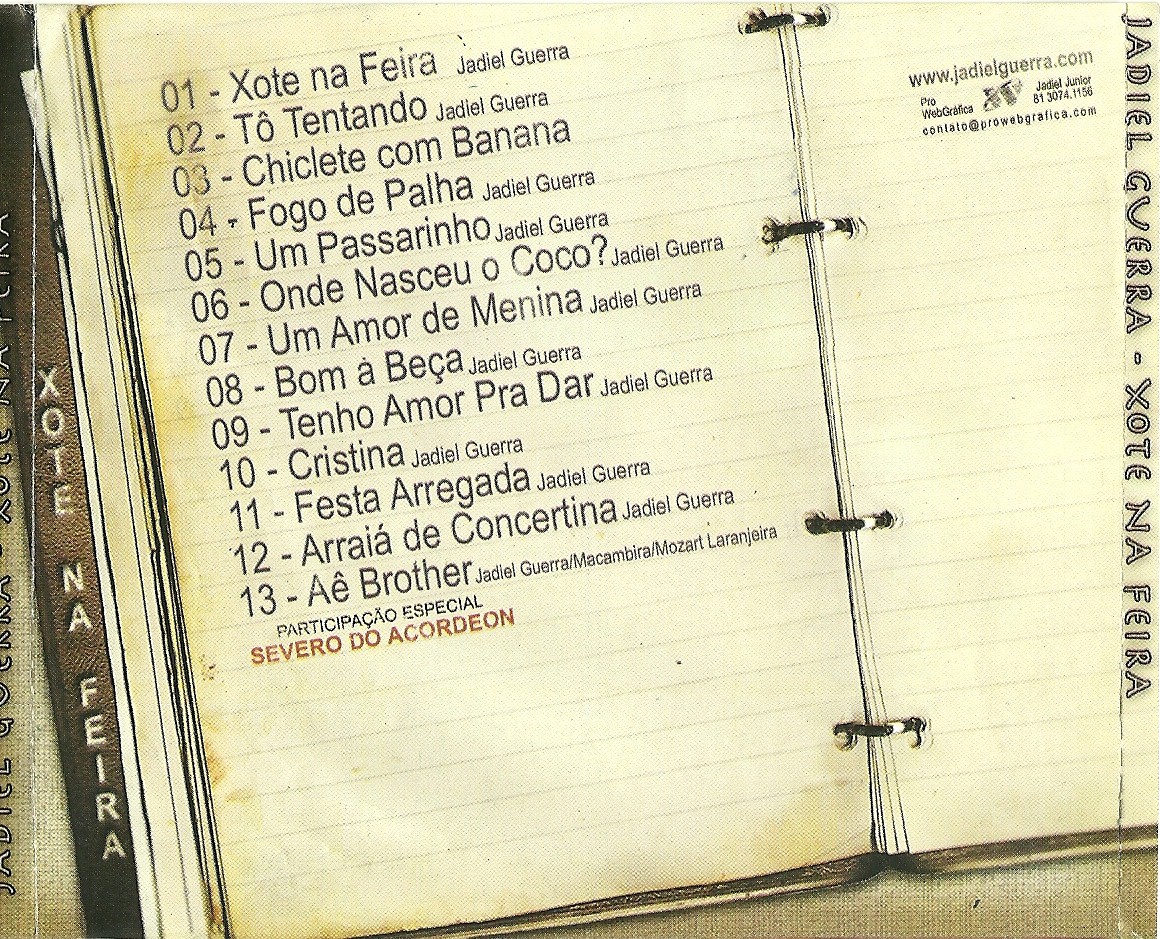 01 - Xote na Feira Jadiel Guerra
02 - Tô Tentando Jadiel Guerra
03 - Chiclete com Banana
04 - Fogo de Palha Jadiel Guerra
05 - Um Passarinho Jadiel Guerra
06 - Onde Nasceu o Coco? Jadiel Guerra
07 - Um Amor de Menina Jadiel Guerra
08 - Bom à Beça Jadiel Guerra
09 - Tenho Amor Pra Dar Jadiel Guerra
10 - Cristina Jadiel Guerra
11 - Festa Arregada Jadiel Guerra
12 - Arraiá de Concertina Jadiel Guerra
13 - Aê Brother Jadiel Guerra/Macambira/Mozart Laranjeira
PARTICIPAÇÃO ESPECIAL
SEVERO DO ACORDEON
www.jadielguerra.com
Pro
WebGráfica
Jadiel Junior
81 3074.1156
contato@prowebgrafica.com
JADIEL GUERRA - XOTE NA FEIRA
XOTE NA FEIRA
JADIEL GUERRA - XOTE NA FEIRA